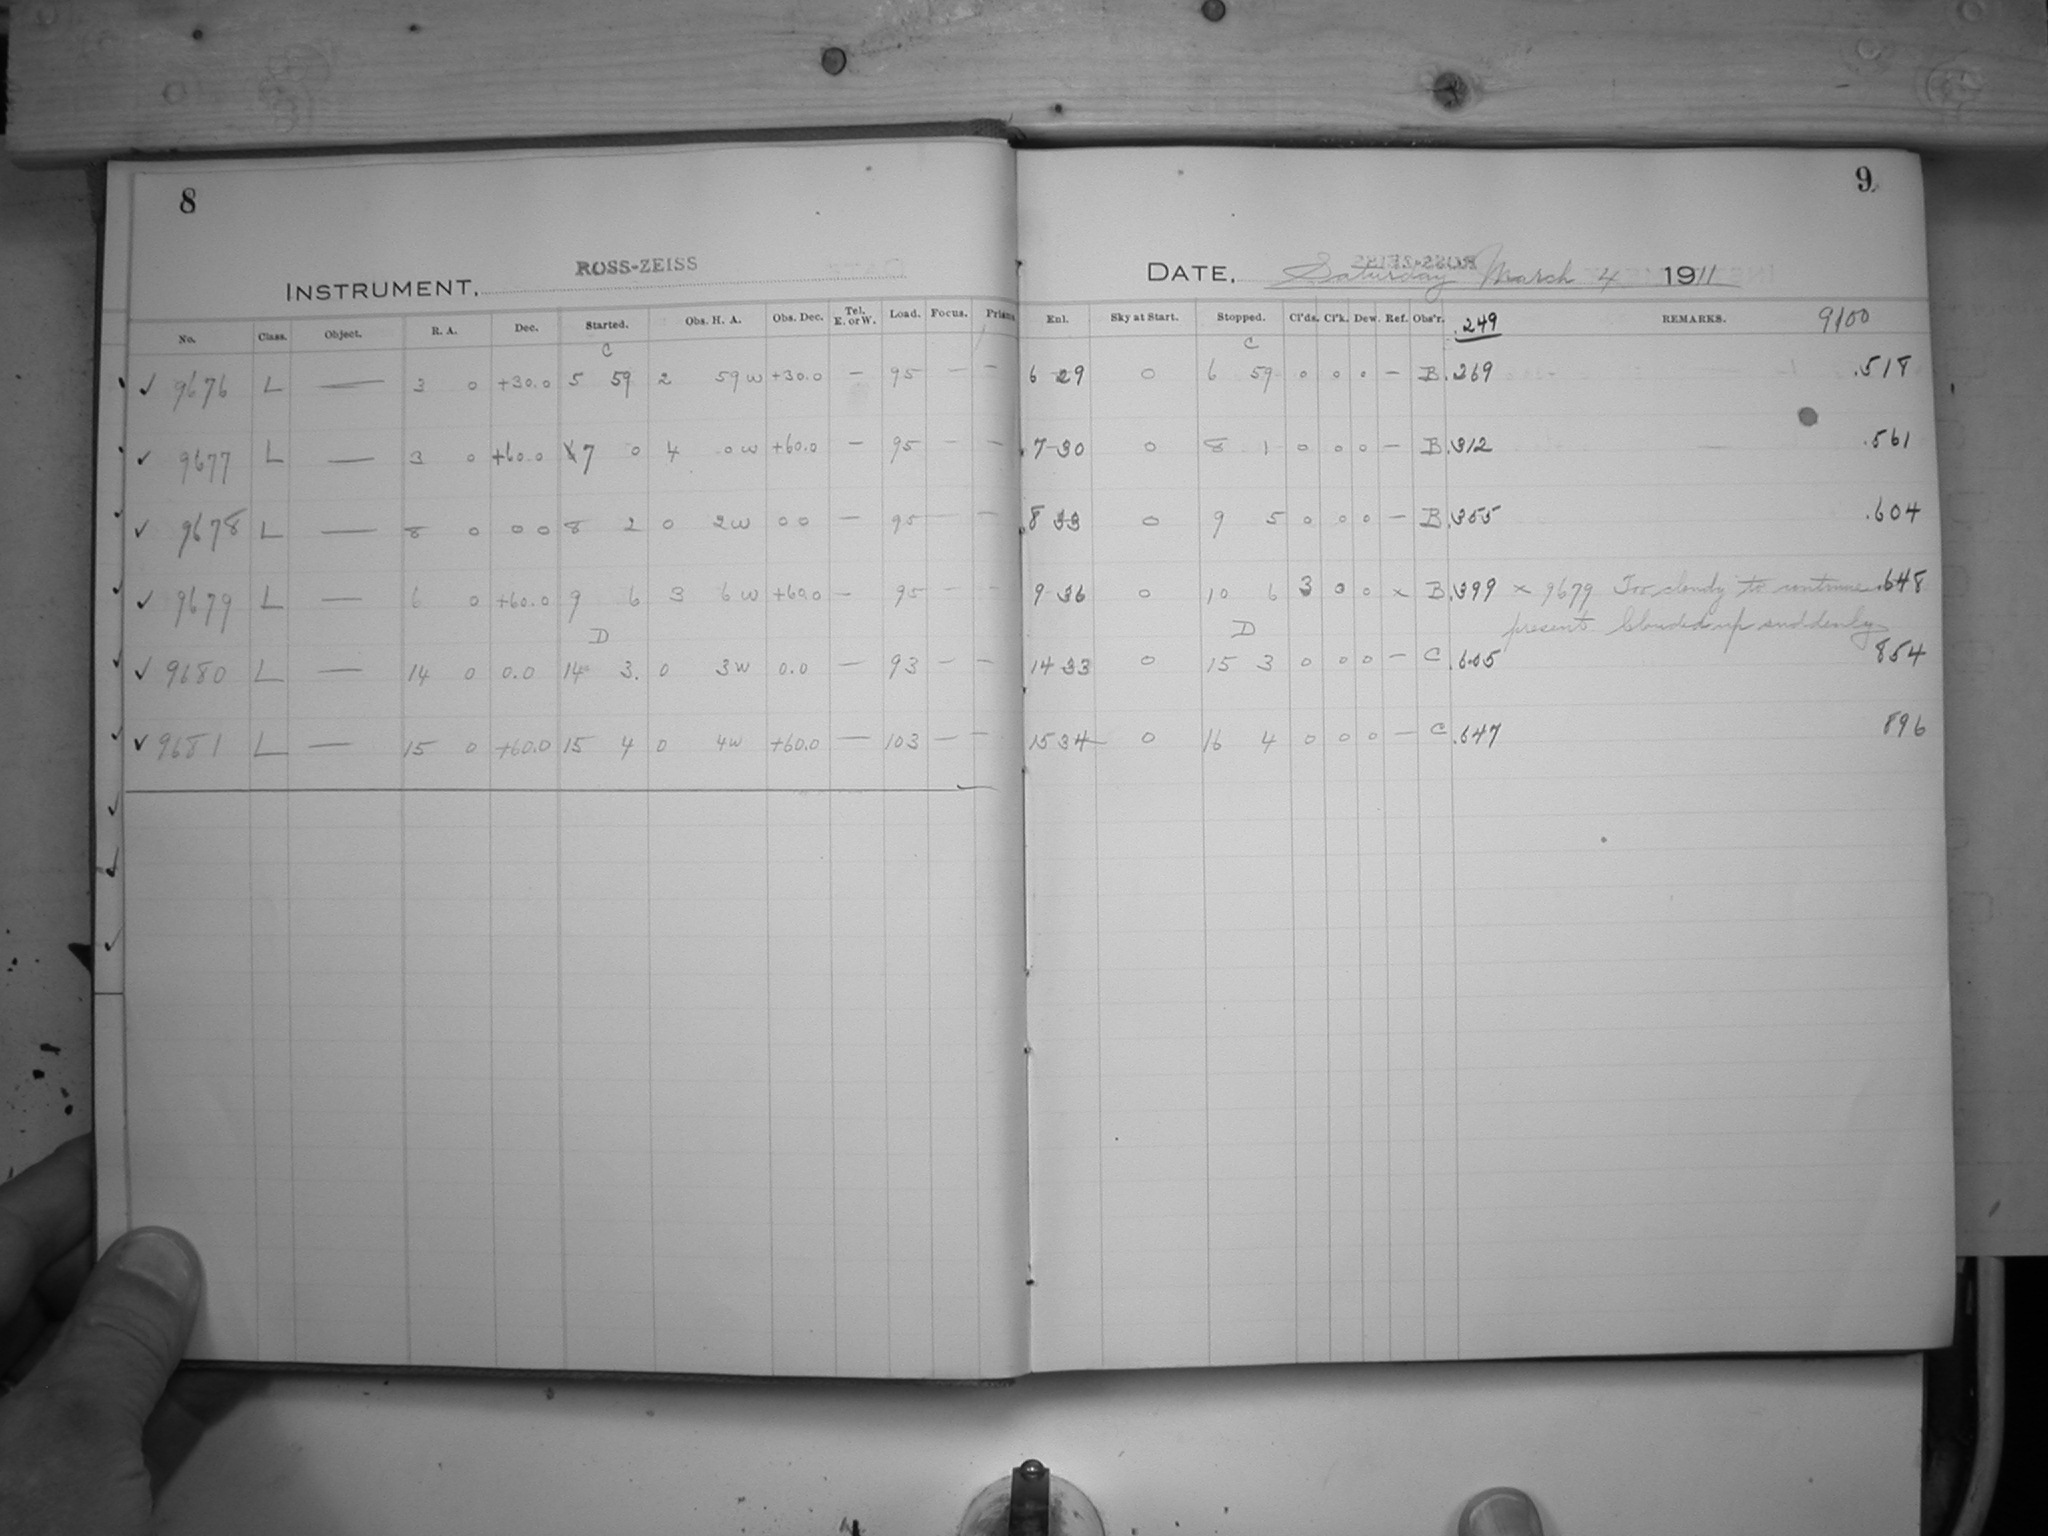 8
INSTRUMENT. ROSS-ZEISS
No. Class. Object. R. A. Dec. Started. Obs. H. A. Obs. Dec. Tel. E. or W. Load. Focus. Prisms
C
✓ 9676 L — 3 0 +30.0 5 59 2 59 w +30.0 — 95 — —
✓ 9677 L — 3 0 +60.0 7 0 4 0 w +60.0 — 95 — —
✓ 9678 L — 8 0 0 0 8 2 0 2 w 0 0 — 95 — —
✓ 9679 L — 6 0 +60.0 9 6 3 6 w +60.0 — 95 — —
D
✓ 9680 L — 14 0 0.0 14 3. 0 3 w 0.0 — 93 — —
✓ 9681 L — 15 0 +60.0 15 4 0 4 w +60.0 — 103 — —
9
DATE. Saturday March 4 1911
Enl. Sky at Start. Stopped. Cl'ds. Cl'k. Dew. Ref. Obs'r. .249 REMARKS. 9100
C
6 29 0 6 59 0 0 0 — B .269 .518
7 30 0 8 1 0 0 0 — B .312 .561
8 33 0 9 5 0 0 0 — B .355 .604
9 36 0 10 6 3 0 0 x B .399 x 9679 Too cloudy to continue .648
present Clouded up suddenly
D
14 33 0 15 3 0 0 0 — C .605 854
15 34 0 16 4 0 0 0 — C .647 896